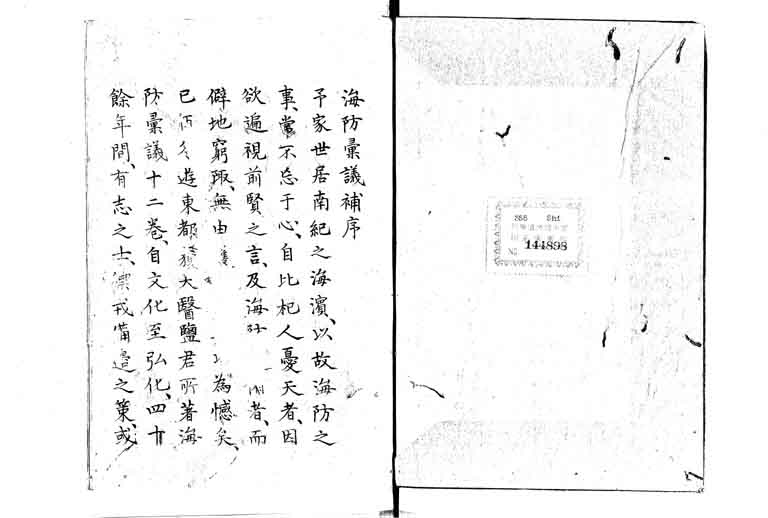 海防彙議補序
予家世居南紀之海濱、以故海防之
事、常不忘于心、自比杞人憂天者、因
欲遍視前賢之言、及海防 者、而
僻地窮陬、無由 為憾矣、
己酉冬遊東都、獲大醫鹽君所著海
防彙議十二卷、自文化至弘化、四十
餘年間、有志之士、 戎備邊之策、或
288 Shi
No 144898